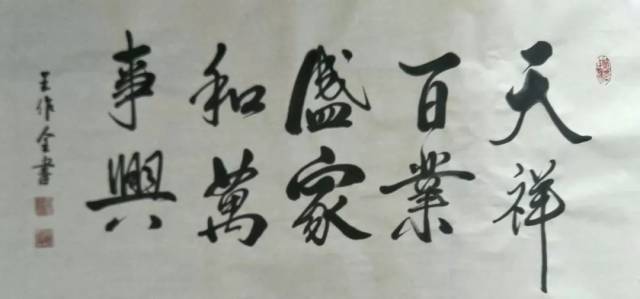 天祥
百業
盛家
和萬
事興
王作全書